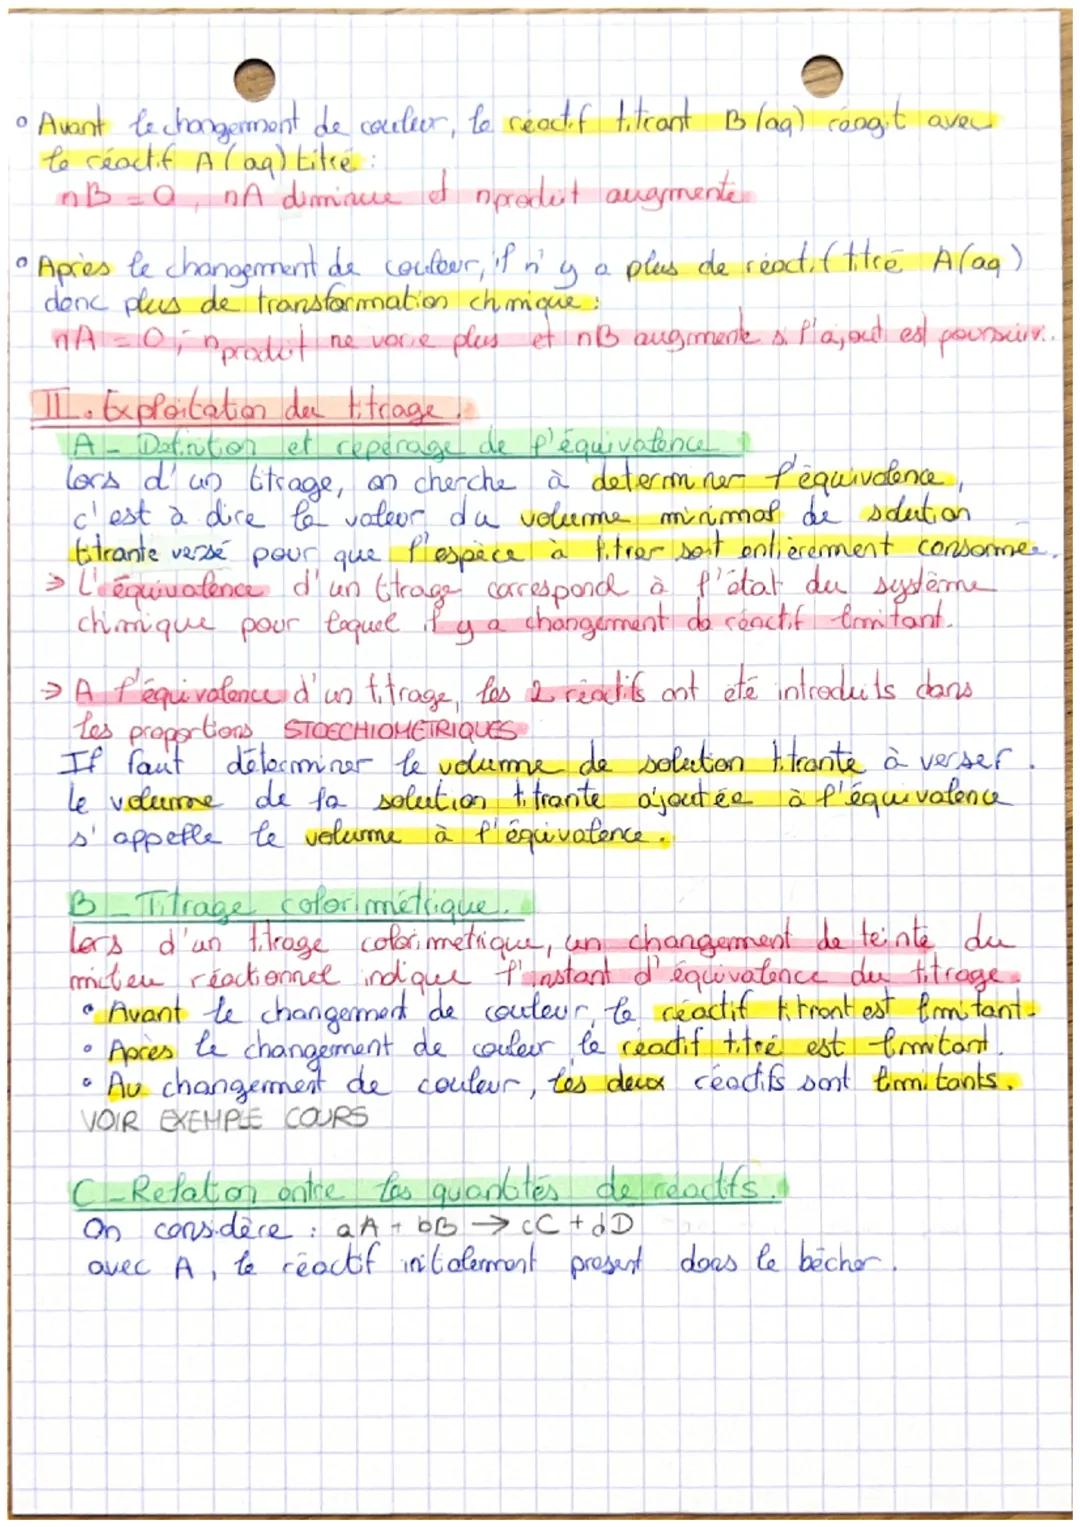 ° Avant le changement de couleur, le réactif titrant B (aq) réagit avec
le réactif A (aq) titré :
nB = 0, nA diminue et nproduit augmente
° Après le changement de couleur, il n'y a plus de réactif titré A(aq)
donc plus de transformation chimique :
nA = 0, nproduit ne varie plus et nB augmente si l'ajout est poursuivi.
II. Exploitation du titrage.
A - Définition et repérage de l'équivalence
Lors d'un titrage, on cherche à determiner l'équivalence,
c'est à dire la valeur du volume minimal de solution
titrante versé pour que l'espèce à titrer soit entièrement consommée.
⇒ L'équivalence d'un titrage correspond à l'état du système
chimique pour lequel il y a changement de réactif limitant.
⇒ A l'équivalence d'un titrage, les 2 réactifs ont été introduits dans
les proportions STOECHIOMETRIQUES
Il faut déterminer le volume de solution titrante à verser.
Le volume de la solution titrante ajoutée à l'équivalence
s'appelle le volume à l'équivalence.
B - Titrage colorimétrique.
Lors d'un titrage colorimétrique, un changement de teinte du
milieu réactionnel indique l'instant d'équivalence du titrage.
• Avant le changement de couleur, le réactif titrant est limitant.
• Après le changement de couleur le réactif titré est limitant.
• Au changement de couleur, les deux réactifs sont limitants.
VOIR EXEMPLE COURS
C - Relation entre les quantités de réactifs.
On considère : aA + bB → cC + dD
avec A, le réactif initalement présent dans le bécher.